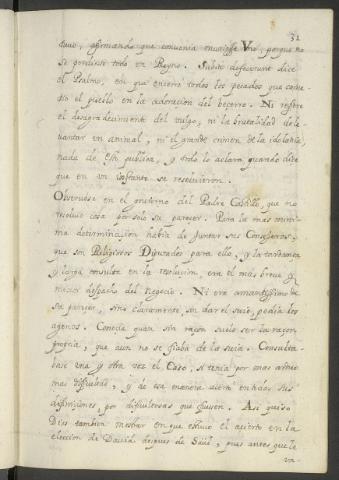 32
tuuo, afirmando que convenia muriesse Vno, porque no
se perdiesse todo un Reyno. Subito defecerunt dice
el Psalmo, en que encerro todos los pecados que come-
tio el pueblo en la adoracion del becerro. Ni refiere
el desagradecimiento del vulgo, ni la brutalidad de le-
uantar un animal, ni el grande crimen de la idolatria
nada de esto publica, y todo lo aclara quando dice
que en un instante se resolvieron.
Observose en el govierno del Padre Castillo, que no
resolvio cosa por solo su parecer. Para la mas mini-
ma determinacion havia de juntar sus Consejeros,
que son Religiosos Diputados para ello, y la tardanza
y larga consulta en la resolucion, era el mas breve y
mejor despacho del negocio. Ni era amantissimo de
su parecer, sino claramente, sin dar el suio, pedia los
agenos. Conocia quan sin razon suele ser la razon
propria, que aun no se fiaba de la suia. Consulta-
base una y otra vez el Caso, si tenia por mas arduo
mas dificultad, y de esa manera acertó en todas sus
disposiciones, por dificultosas que fuesen. Asi quiso
Dios tambien mostrar en que estuvo el acierto en la
eleccion de David despues de Saül, pues antes que le
vn-